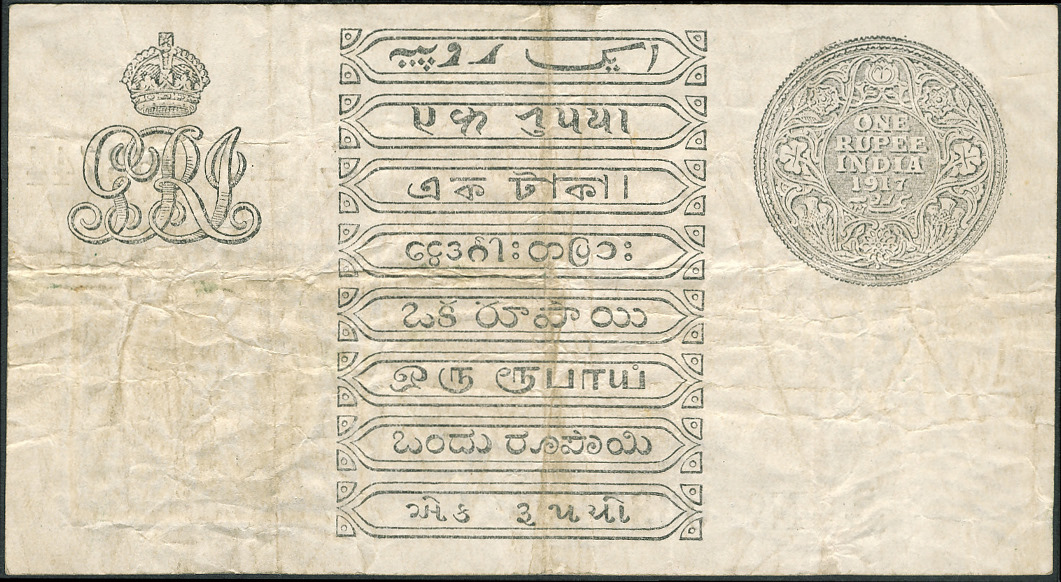 GRI
ایک روپیہ
𑂉𑂍 𑂩𑂳𑂣𑂨𑂰
এক টাকা।
ငွေဒင်္ဂါးတပြား
ఒక రూపాయి
ஒரு ரூபாய்
ಒಂದು ರೂಪಾಯಿ
એક રૂપયો
ONE
RUPEE
INDIA
1917